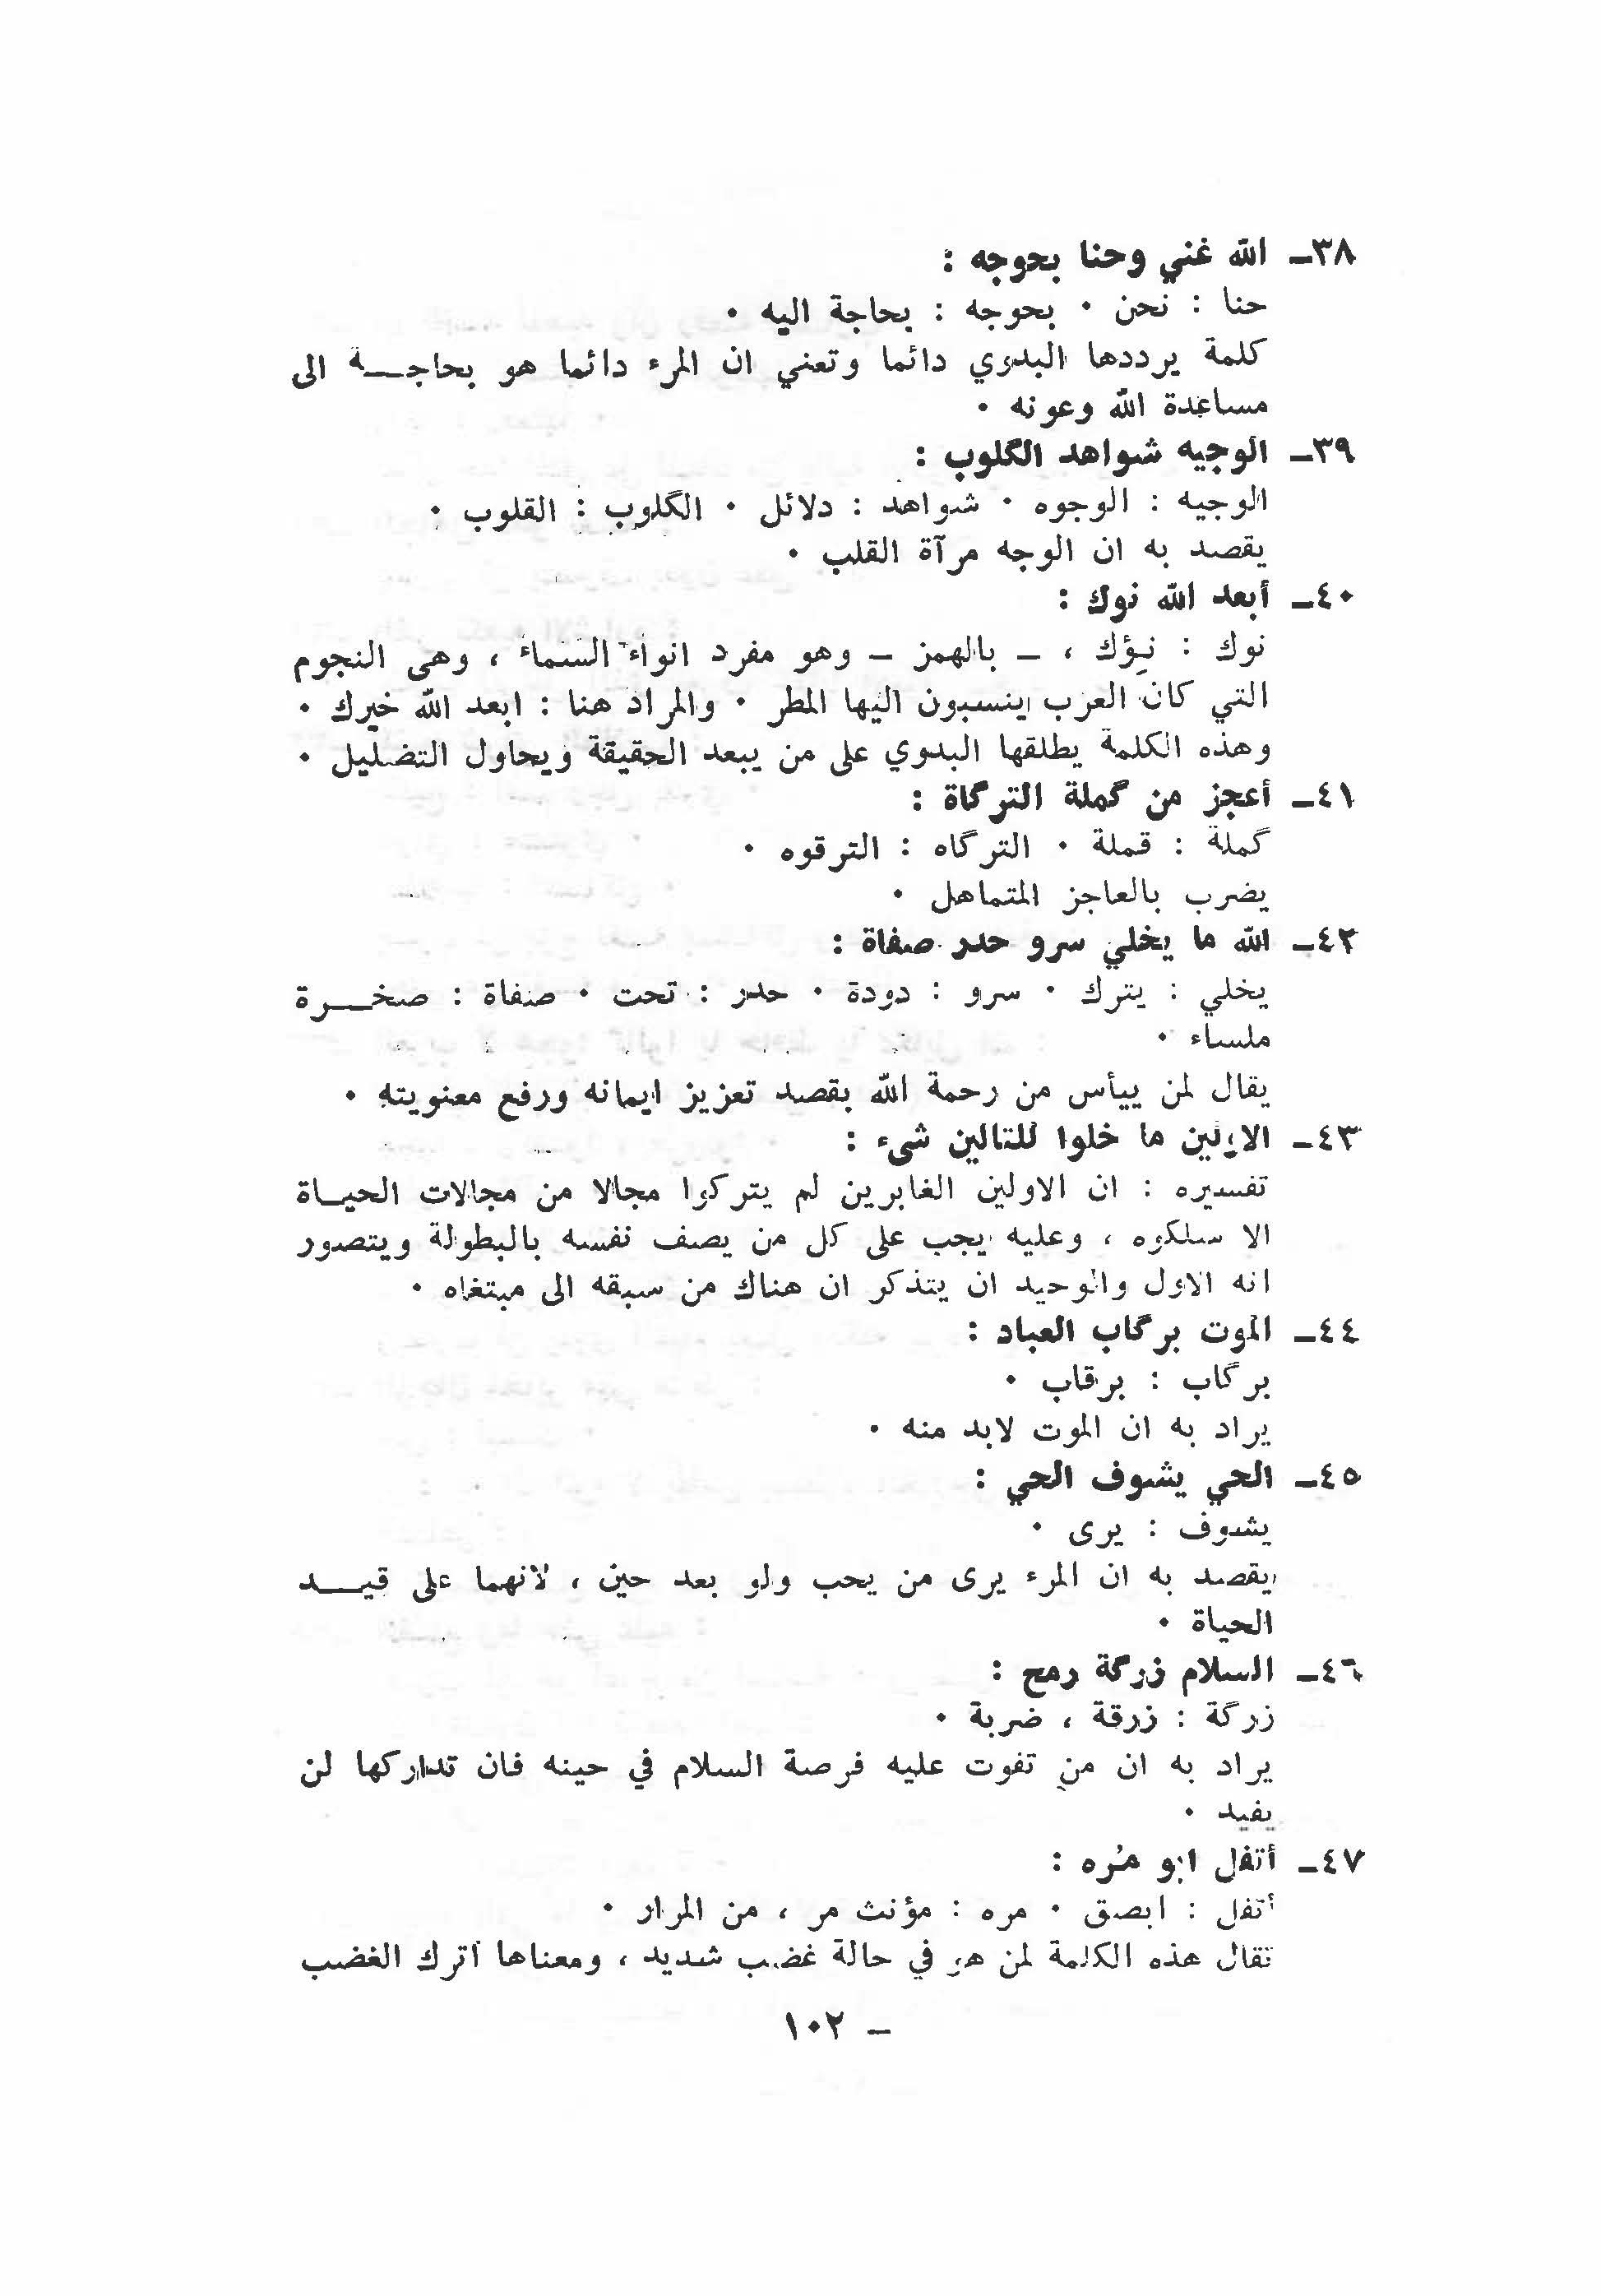 ٣٨ـ الله غني وحنا بحوجه :
حنا : نحن ٠ بحوجه : بحاجة اليه ٠
كلمة يرددها البدوي دائما وتعني ان المرء دائما هو بحاجـــة الى
مساعدة الله وعونه ٠
٣٩ـ الوجيه شواهد الگلوب :
الوجيه : الوجوه ٠ شواهد : دلائل ٠ الگلوب : القلوب ٠
يقصد به ان الوجه مرآة القلب ٠
٤٠ـ أبعد الله نوك :
نوك : نوؤك ، ـ بالهمز ـ وهو مفرد انواء السماء ، وهي النجوم
التي كان العرب ينسبون اليها المطر ٠ والمراد هنا : ابعد الله خيرك ٠
وهذه الكلمة يطلقها البدوي على من يبعد الحقيقة ويحاول التضليل ٠
٤١ـ أعجز من گملة الترگاة :
گملة : قملة ٠ الترگاه : الترقوه ٠
يضرب بالعاجز المتماهل ٠
٤٢ـ الله ما يخلي سرو حدر صفاة :
يخلي : يترك ٠ سرو : دودة ٠ حدر : تحت ٠ صفاة : صخـــرة
ملساء ٠
يقال لمن ييأس من رحمة الله بقصد تعزيز ايمانه ورفع معنويته ٠
٤٣ـ الاولين ما خلوا للتالين شيء :
تفسيره : ان الاولين الغابرين لم يتركوا مجالا من مجالات الحيــاة
الا سلكوه ، وعليه يجب على كل من يصف نفسه بالبطولة ويتصور
انه الاول والوحيد ان يتذكر ان هناك من سبقه الى مبتغاه ٠
٤٤ـ الموت برگاب العباد :
برگاب : برقاب ٠
يراد به ان الموت لابد منه ٠
٤٥ـ الحي يشوف الحي :
يشوف : يرى ٠
يقصد به ان المرء يرى من يحب ولو بعد حين ، لانهما على قيـــد
الحياة ٠
٤٦ـ السلام زرگة رمح :
زرگة : زرقة ، ضربة ٠
يراد به ان من تفوت عليه فرصة السلام في حينه فان تداركها لن
يفيد ٠
٤٧ـ أتفل ابو مُره :
أتفل : ابصق ٠ مره : مؤنث مر ، من المرار ٠
تقال هذه الكلمة لمن هو في حالة غضب شديد ، ومعناها اترك الغضب
ـ ١٠٢